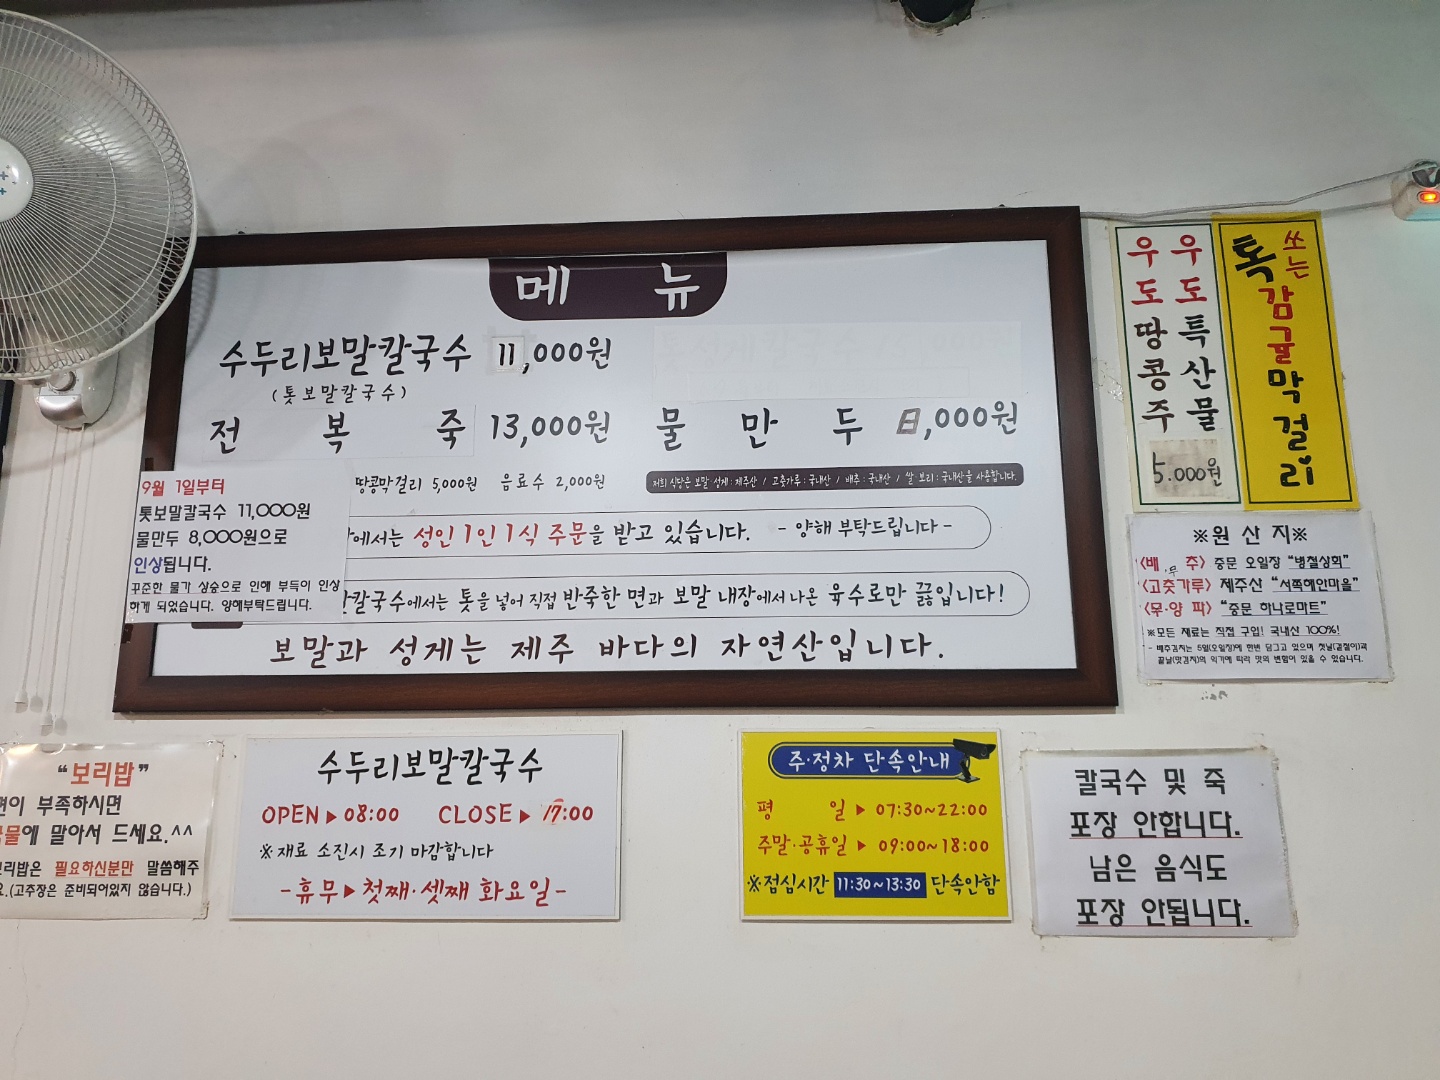 메 뉴
수두리보말칼국수 11,000원
(톳보말칼국수)
전 복 죽 13,000원 물 만 두 8,000원
땅콩막걸리 5,000원 음료수 2,000원
저희 식당은 보말·성게:제주산 / 고춧가루:국내산 / 배추:국내산 / 쌀·보리:국내산을 사용합니다.
에서는 성인 1인 1식 주문을 받고 있습니다. - 양해 부탁드립니다 -
칼국수에서는 톳을 넣어 직접 반죽한 면과 보말 내장에서 나온 육수로만 끓입니다!
보말과 성게는 제주 바다의 자연산입니다.
9월 1일부터
톳보말칼국수 11,000원
물만두 8,000원으로
인상됩니다.
꾸준한 물가 상승으로 인해 부득이 인상
하게 되었습니다. 양해부탁드립니다.
우도특산물
우도땅콩주
5.000원
톡 쏘는
감귤막걸리
※원 산 지※
<배 추> 중문 오일장 "병철상회"
무
<고춧가루> 제주산 "서쪽해안마을"
<무·양 파> "중문 하나로마트"
※모든 재료는 직접 구입! 국내산 100%!
- 배추김치는 5일(오일장)에 한번 담그고 있으며 첫날(겉절이)과
끝날(맛김치)의 익기에 따라 맛의 변함이 있을 수 있습니다.
"보리밥"
면이 부족하시면
국물에 말아서 드세요.^^
보리밥은 필요하신분만 말씀해주
요.(고추장은 준비되어있지 않습니다.)
수두리보말칼국수
OPEN▶08:00 CLOSE▶17:00
※재료 소진시 조기 마감합니다
-휴무▶첫째·셋째 화요일-
주·정차 단속안내
평 일▶07:30~22:00
주말·공휴일▶09:00~18:00
※점심시간 11:30~13:30 단속안함
칼국수 및 죽
포장 안합니다.
남은 음식도
포장 안됩니다.